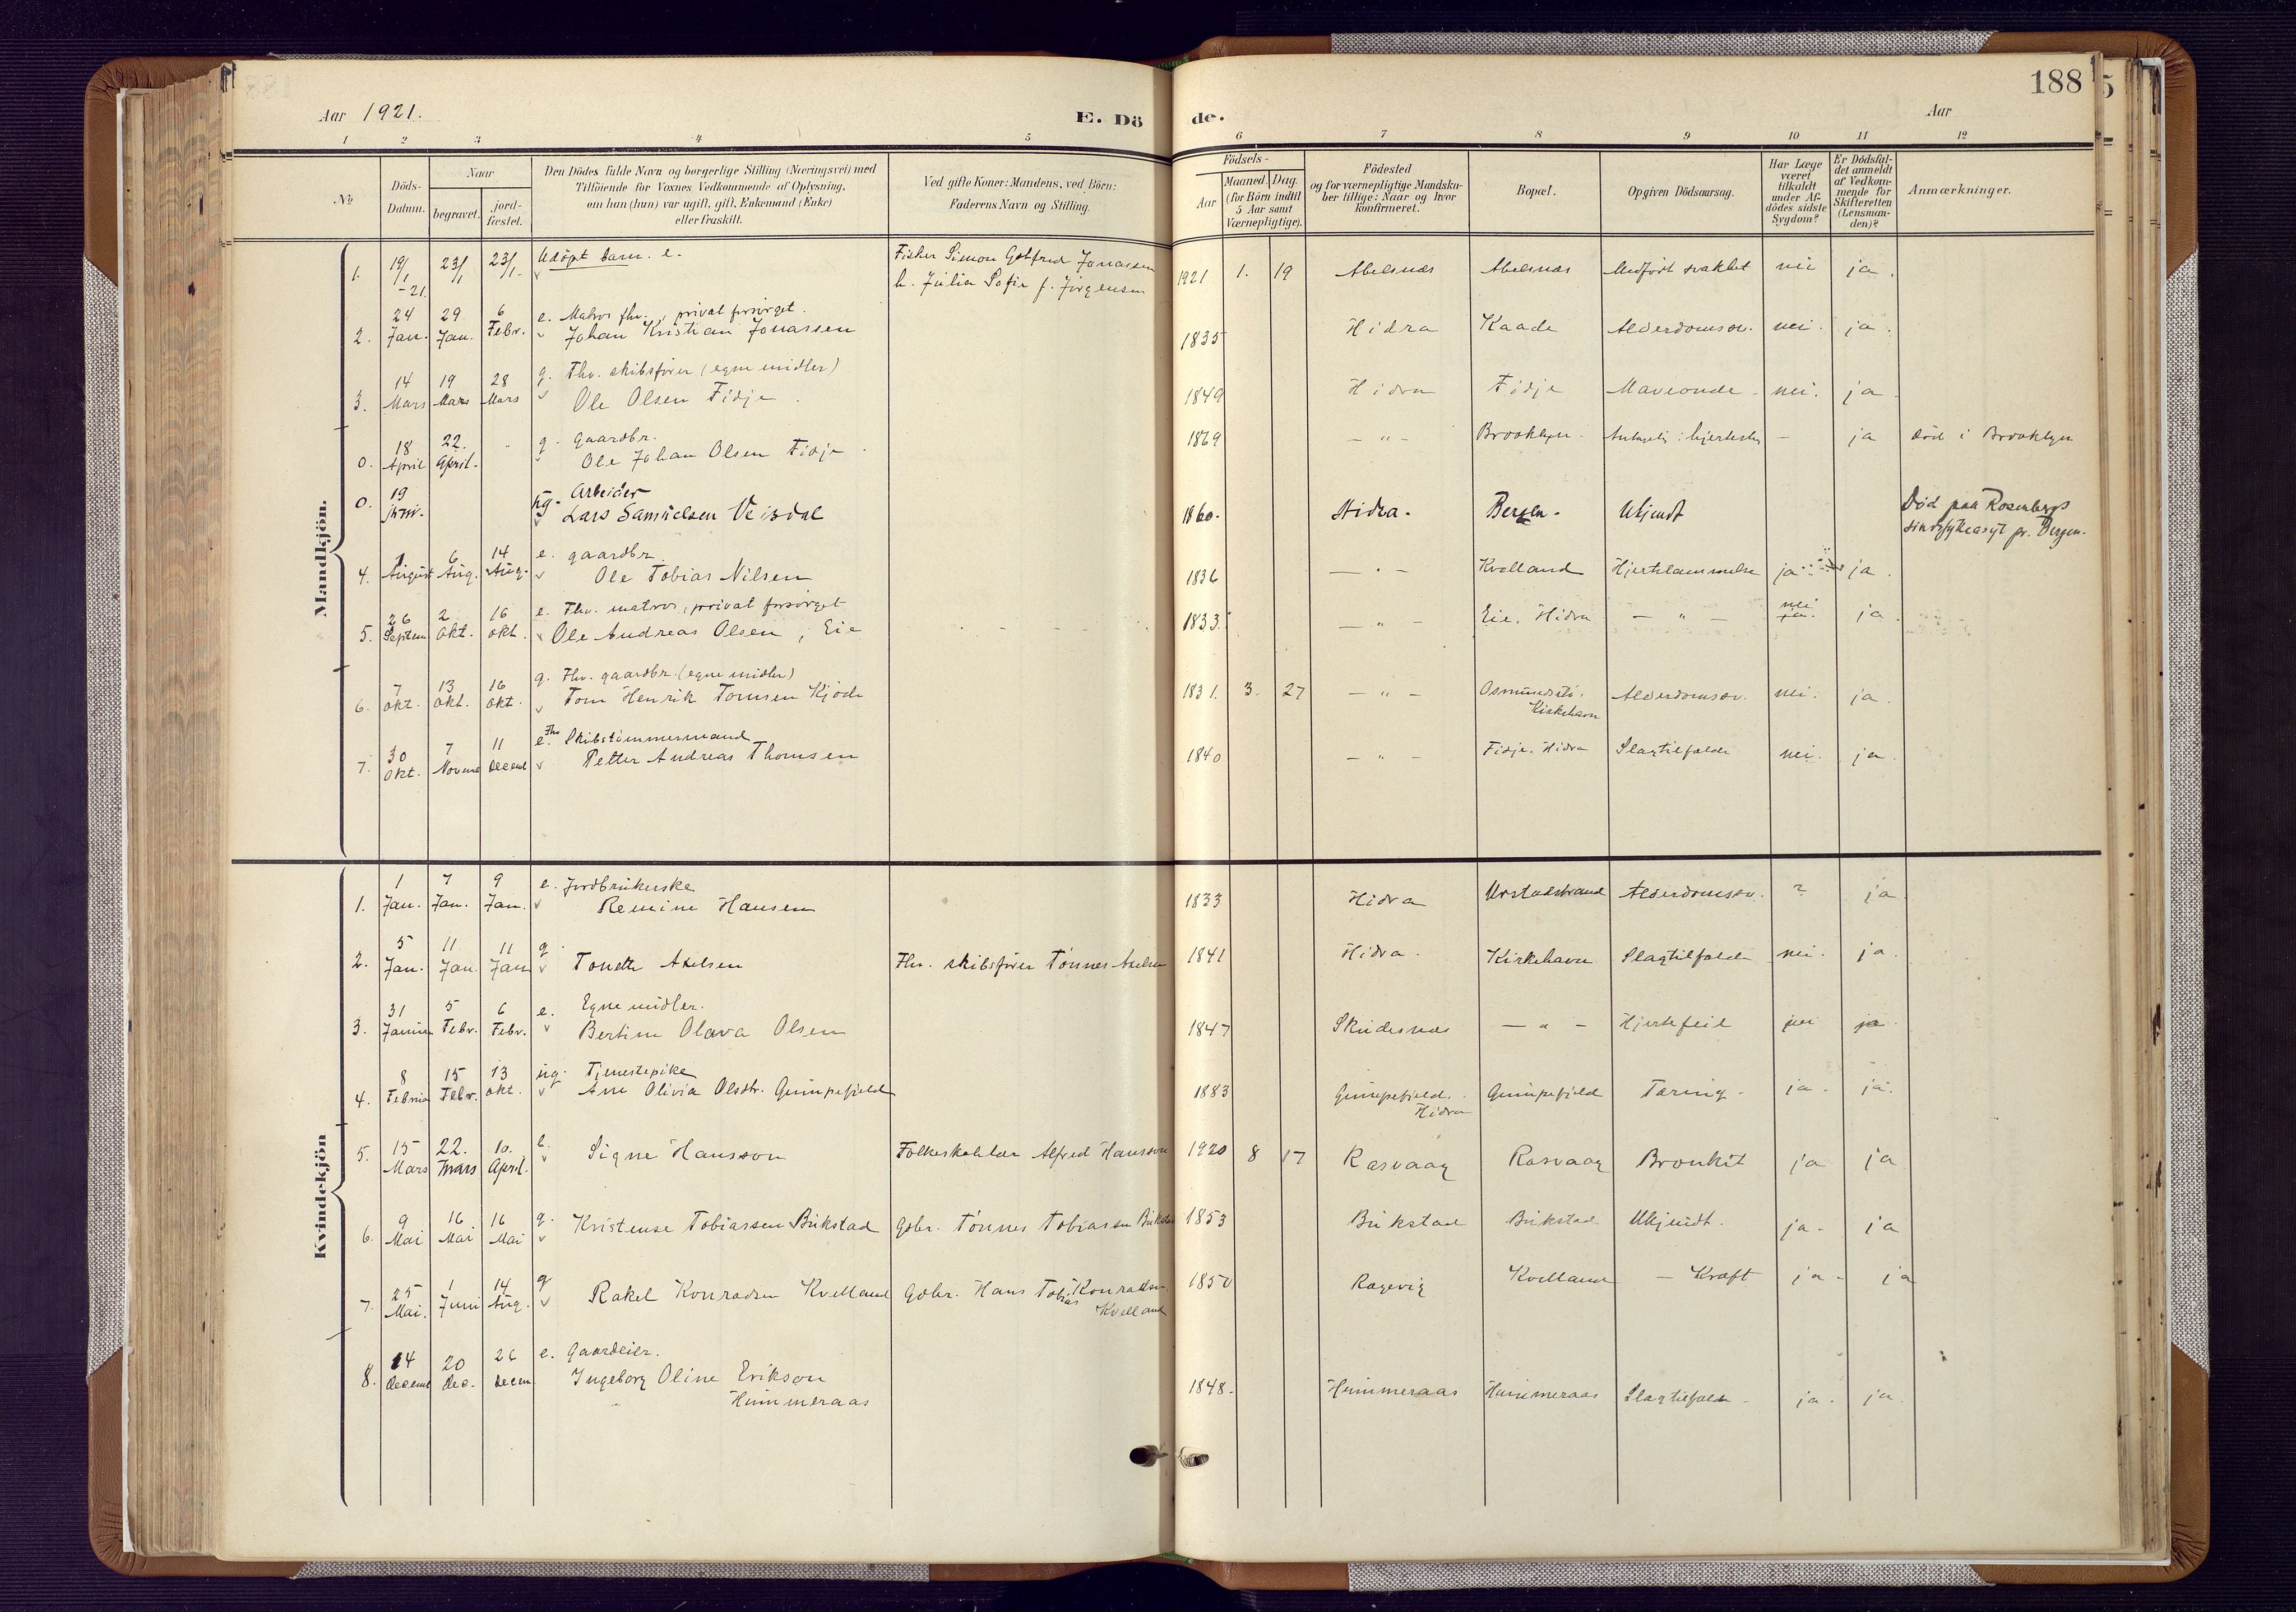 188
Aar 1921.
E. Dö de.
Aar
1 2 3 4 5 6 7 8 9 10 11 12
№
Döds-Datum.
Naar
begravet.
jord-fæstet.
Den Dödes fulde Navn og borgerlige Stilling (Næringsvei) med
Tilföiende for Voxnes Vedkommende af Oplysning,
om han (hun) var ugift, gift, Enkemand (Enke)
eller fraskilt.
Ved gifte Koner: Mandens, ved Börn:
Faderens Navn og Stilling.
Födsels-
Aar
Maaned. Dag.
(for Börn indtil
5 Aar samt
Værnepligtige).
Födested
og for værnepligtige Mandska-
ber tillige: Naar og hvor
Konfirmeret.
Bopæl.
Opgiven Dödsaarsag.
Har Læge
været
tilkaldt
under Af-
dödes sidste
Sygdom?
Er Dödsfal-
det anmeldt
af Vedkom-
mende for
Skifteretten
(Lensman-
den)?
Anmærkninger.
Mandkjön.
1. 19/1 -21. 23/1 23/1- Udöpt barn. e. Fisker Simon Gotfred Jonassen
h. Julia Sofie f. Jörgensen 1921 1. 19 Abelsnæs Abelsnæs Medfödt svakhet nei ja.
2. 24 Jan. 29 Jan. 6 Febr. e. Matros fhv., privat forsörget.
Johan Kristian Jonassen 1835 Hidra Kaade Alderdomssv. nei. ja.
3. 14 Mars 19 Mars 28 Mars g. Fhv. skibsförer (egne midler)
Ole Olsen Fidje. 1849 Hidra Fidje Maveonde. nei. ja.
0. 18 April 22. April. g. gaardbr.
Ole Johan Olsen Fidje. 1869 - " - Brooklyn. - ja död i Brooklyn
0. 19 ug. Arbeider
Lars Samuelsen Veisdal 1860. Hidra. Bergen. Ukjendt Död paa Rosenbergs
sindsykeasyl pr. Bergen.
4. 1 August 6 Aug. 14 Aug. e. gaardbr.
Ole Tobias Nilsen 1836 - " - Kvelland Hjertelammelse ja ja.
5. 26 Septem 2 Okt. 16 Okt. e. Fhv. matros, privat forsörget
Ole Andreas Olsen, Eie 1833. - " - Eie. Hidra - " - nei ja. ja.
6. 7 Okt. 13 Okt. 16 Okt. g. Fhv. gaardbr. (egne midler)
Tom Henrik Tomsen Kjöde 1831. 3. 27 - " - Kirkehavn Alderdomssv. nei. ja.
7. 30 Okt. 7 Novem 11 Decem e. Fhv Skibstömmermand
Petter Andreas Thomsen 1840 - " - Fidje. Hidra Slagtilfælde nei. ja.
Kvindekjön
1. 1 Jan. 7 Jan. 9 Jan. e. Jordbrukerske
Remine Hansen 1833 Hidra Urstadstrand Alderdomssv. ? ja
2. 5 Jan. 11 Jan. 11 Jan g.
Tonette Axelsen Fhv. skibsförer Tönnes Axelsen 1841 Hidra. Kirkehavn Slagtilfælde nei. ja.
3. 31 Januar 5 Febr. 6 Febr. e. Egne midler.
Bertine Olava Olsen 1847 Skudesnæs - " - Hjertefeil nei ja.
4. 8 Februar 15 Febr. 13 Okt. ug. Tjenestepike
Ane Olivia Olsdtr. Gumpefjeld 1883 Gumpefjeld. Hidra Gumpefjeld Tæring. ja. ja.
5. 15 Mars 22. Mars 10. April. b. Signe Hansson Alfred Hansson 1920 8 17 Rasvaag Rasvaag Bronkit ja ja
6. 9 Mai 16 Mai 16 Mai g. Kristense Tobiassen Bukstad Gdbr. Tönnes Tobiassen Bukstad 1853 Bukstad Bukstad Ukjendt. ja. ja
7. 25 Mai. 1 Juni 14 Aug. g Rakel Konradsen Kvelland Gdbr. Hans Tobias Konradsen
Kvelland 1850 Ragevig Kvelland - Kræft ja - ja
8. 14 Decem 20 Dec. 26 Decem e. Gaardeier.
Ingeborg Oline Erikson
Hummeraas 1848. Hummeraas Hummeraas Slagtilfælde. ja. ja.